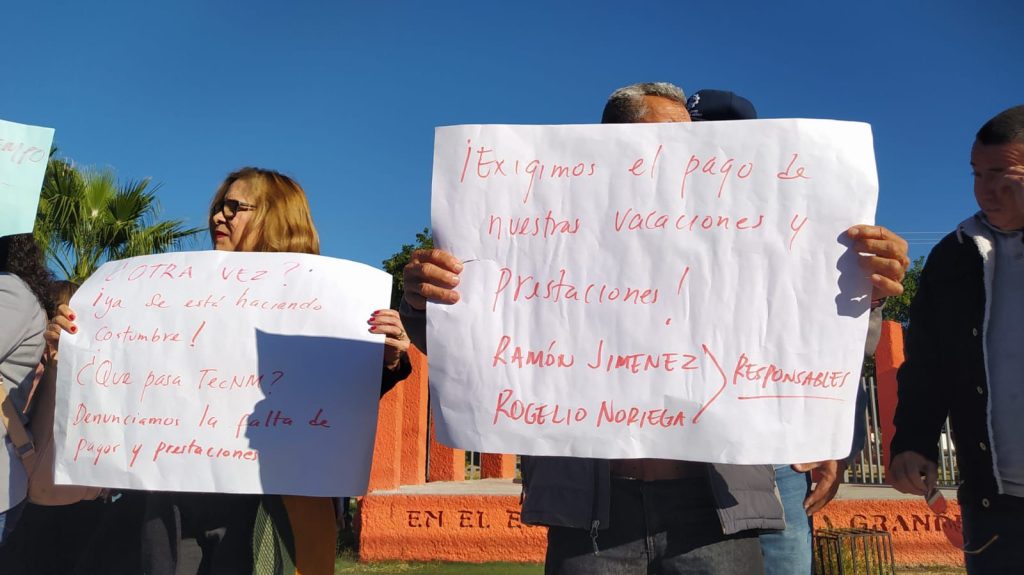 ¿OTRA VEZ?
¡ya se está haciendo
costumbre!
¿Que pasa TecNM?
Denunciamos la falta de
pagor y prestaciones
¡Exigimos el pago de
nuestras vacaciones y
Prestaciones!
RAMÓN JIMENEZ
ROGELIO NORIEGA
RESPONSABLES
EN EL
GRANDE